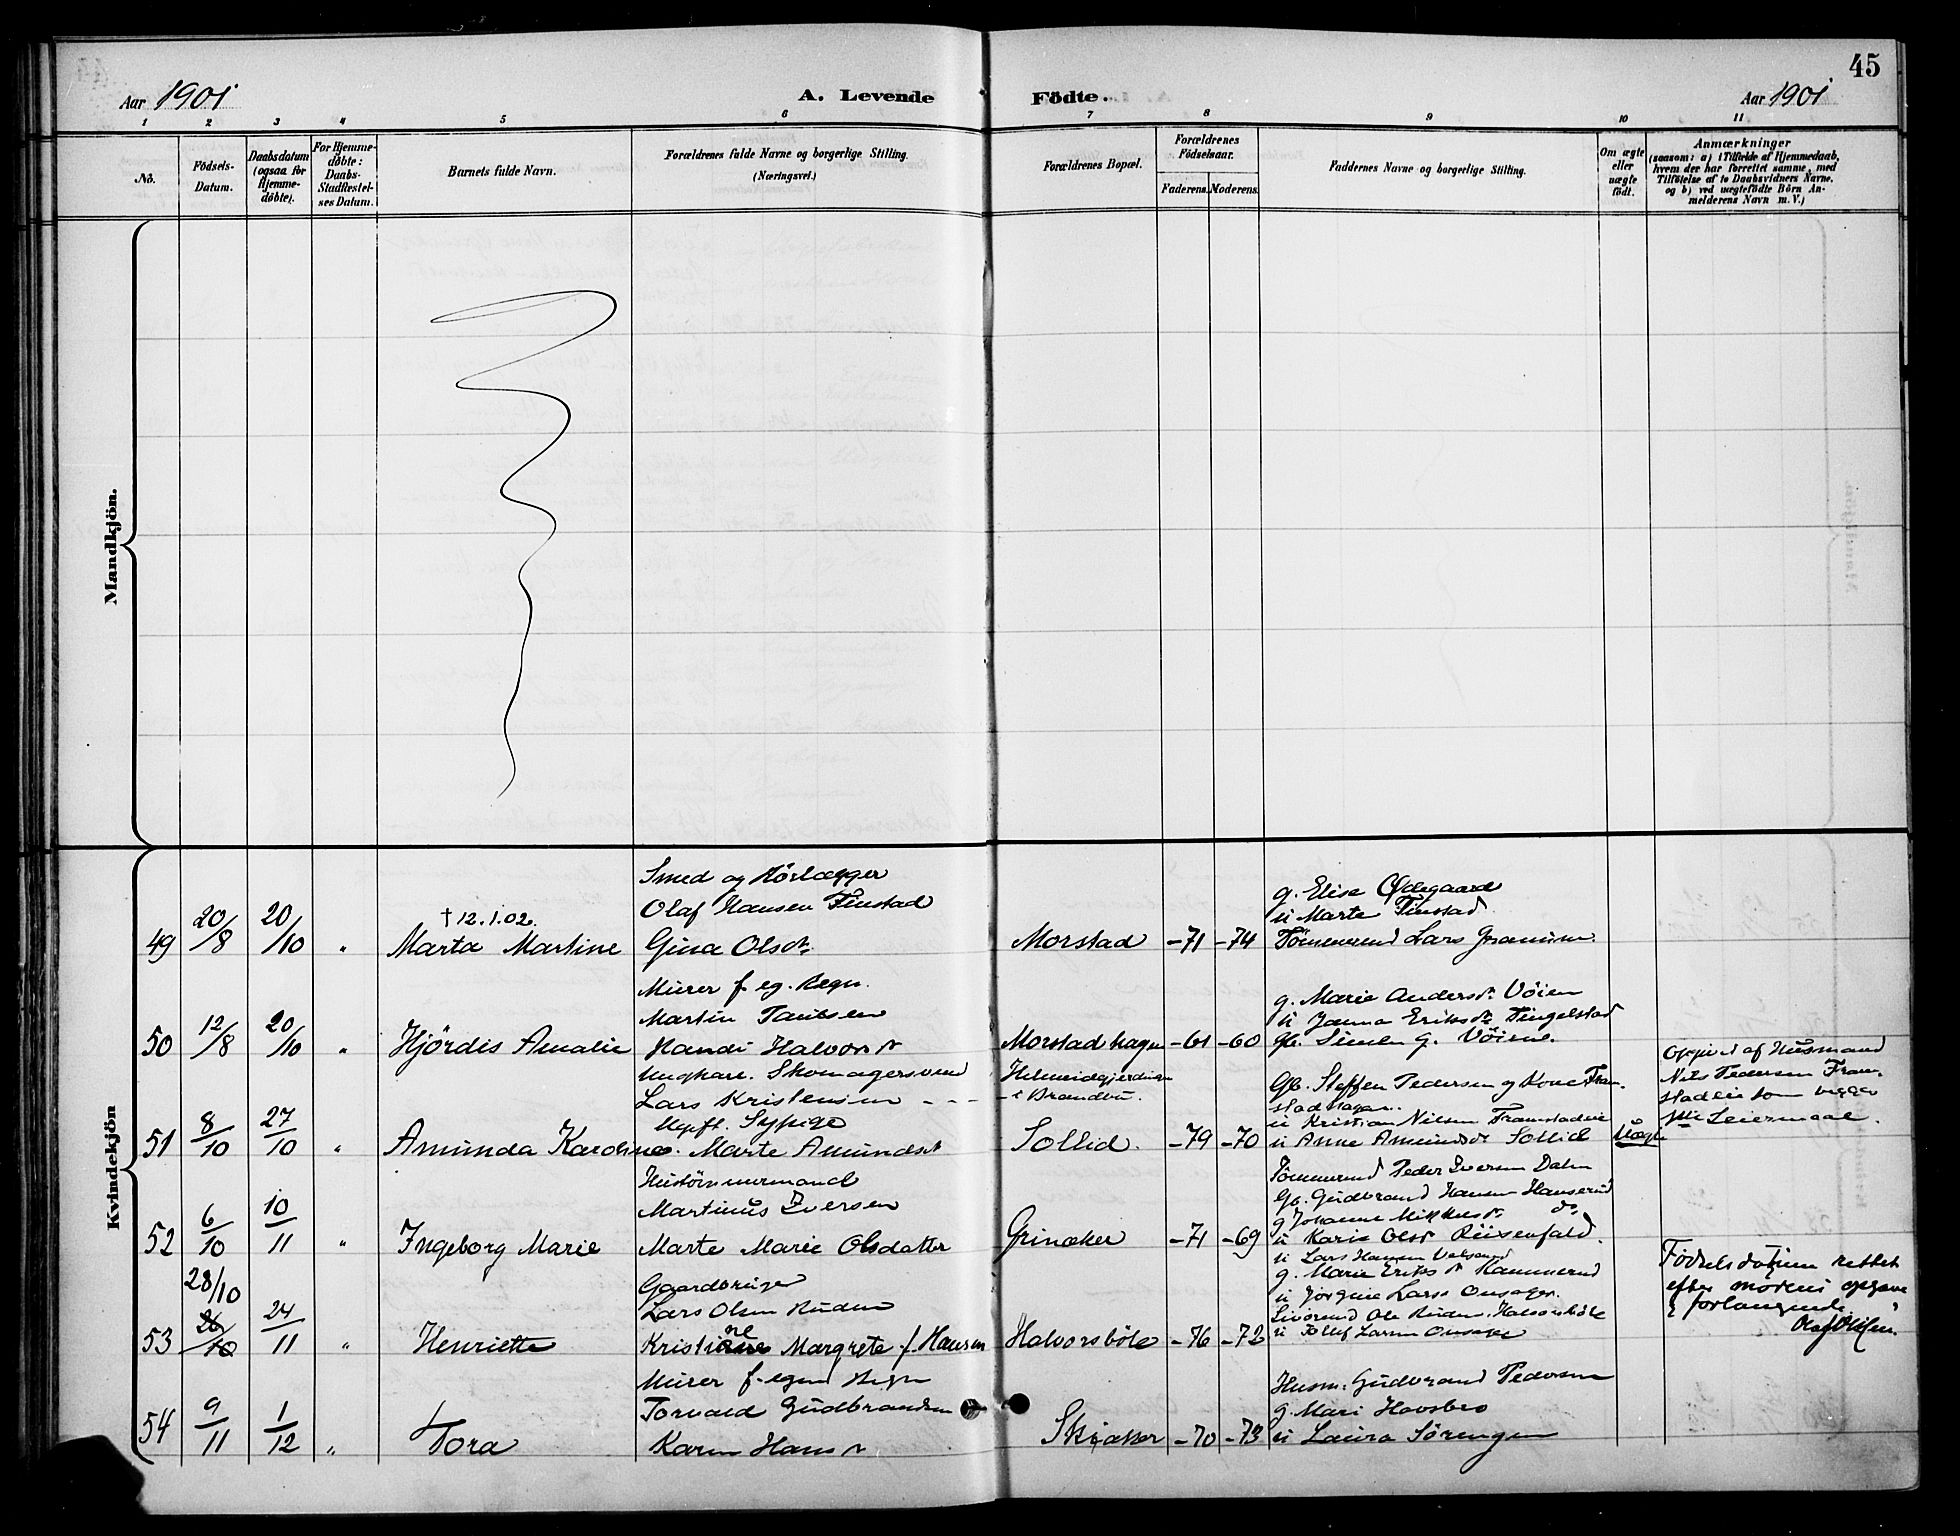 45
Aar 1901
A. Levende
Födte.
Aar 1901
1 2 3 4 5 6 7 8 9 10 11
No.
Födsels-
Datum.
Daabsdatum
(ogsaa for
Hjemme-
døbte).
For Hjemme-
døbte:
Daabs-
Stadfæstel-
ses Datum.
Barnets fulde Navn.
Forældrenes fulde Navne og borgerlige Stilling.
(Næringsvei.)
Forældrenes Bopæl.
Forældrenes
Födselsaar.
Faderens. Moderens.
Faddernes Navne og borgerlige Stilling.
Om ægte
eller
uægte
födt.
Anmærkninger
(saasom: a) i Tilfælde af Hjemmedaab,
hvem der har forrettet samme, med
Tilföielse af to Daabsvidners Navne.
og b) ved uægtefödte Börn An-
melderens Navn m. V.)
Mandkjön.
Kvindekjön
49 20/8 20/10 "
† 12.1.02.
Marta Martine
Smed og Rørlægger
Olaf Hansen Finstad
Gina Olsdt.
Morstad -71 -74
g. Elise Ødegaard
u Marte Finstad
Lars
50 12/8 20/10 "
Hjördis Amalie
Murer f. eg. Regn.
Martin Paulsen
Randi Halvorsdt
Morstadhagen -61 -60
g. Marie Andersdt. Vöien
u Janna Eriksdt. Tingelstad
Gb. Simen G. Vöien.
51 8/10 27/10 "
Amunda Karoline
Ungkarl. Skomagersvend
Lars Kristensen - - -
Ugift. Sypige
Marte Amundsdt
- i Brandbu.
Sollid. -79 -70
Gb. Steffen Pedersen og Kone Fram-
stadhagen.
u Kristian Nilsen Framstadeie
u Anne Amundsdt. Sollid
Uægte
Opgivet af Husmand
Nils Pedersen Fram-
stadeie som begges
1ste Leiermaal.
52 6/10 10/11 "
Ingeborg Marie
Hustömmermand
Martinus Iversen
Marte Marie Olsdatter
Grinaker -71 -69
Tömmermd Peder Iversen Dalen
Gb. Gudbrand Hansen Hanserud
g Johanne Mikkelsdt. do
u Karie Olsdt
53 28/10 26/10 24/11 "
Henriette
Gaardbruger
Lars Olsen Ruden
Kristine Margrete f. Hansen
Halvorsböle -76 -72
u Lars Hansen
g. Marie Eriksdt
u Jörgine Larsdt Onsager.
Ole Ruden, Halvorsböle
u Tollef Larsen Onsager
Fødselsdatum rettet
efter moderens opgave
& forlangende.
Olaf Olsen.
54 9/11 1/12 "
Tora
Murer f. egen Regn
Torvald Gudbrandsen
Karen Hansdt
Skiaker -70 -73
Husm. Gudbrand Pedersen
g. Mari Hovsbro
u Laura Sörengen